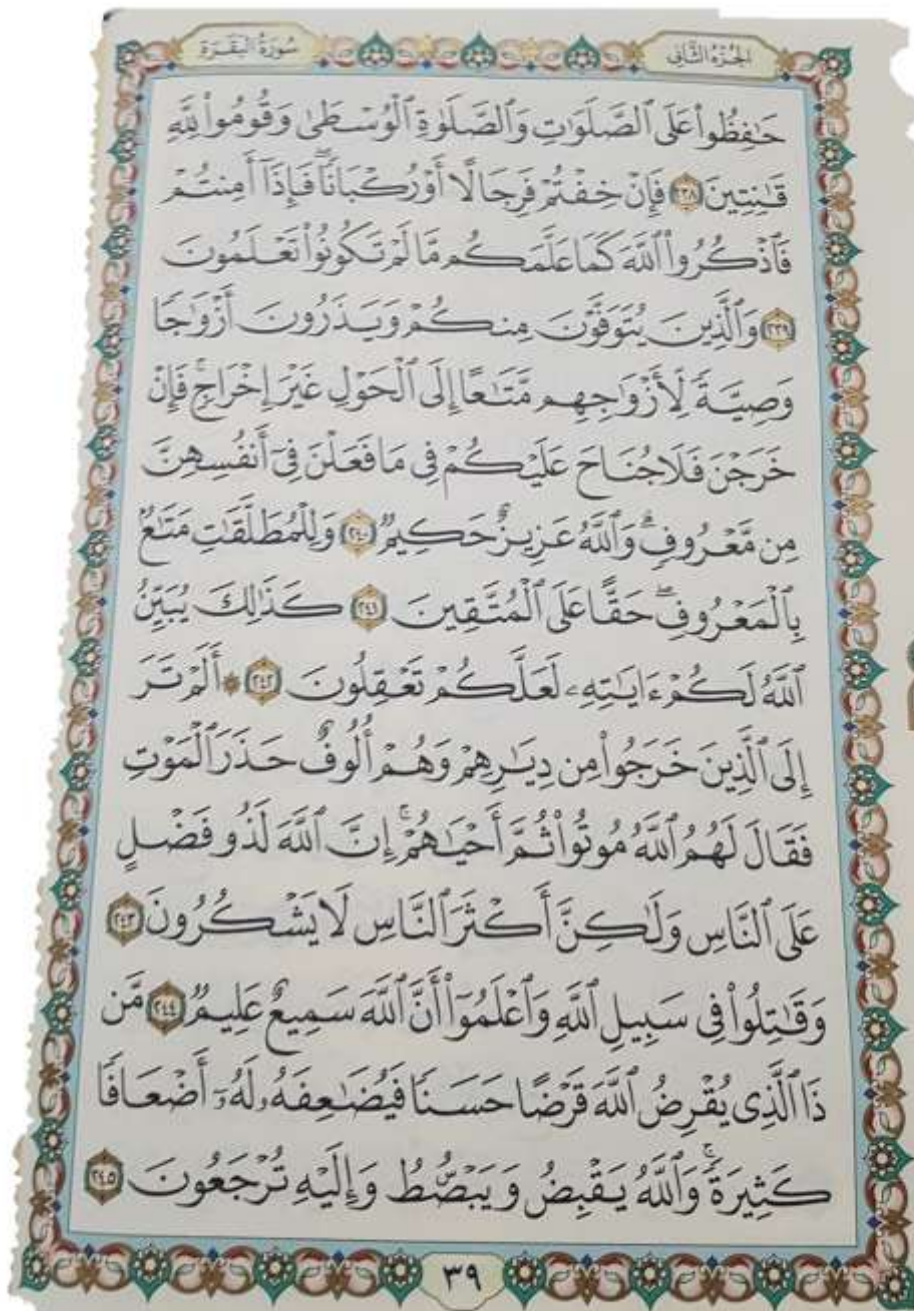 الجزء الثاني
سورة البقرة
حَٰفِظُوا۟ عَلَى ٱلصَّلَوَٰتِ وَٱلصَّلَوٰةِ ٱلْوُسْطَىٰ وَقُومُوا۟ لِلَّهِ
قَٰنِتِينَ ٢٣٨ فَإِنْ خِفْتُمْ فَرِجَالًا أَوْ رُكْبَانًا ۖ فَإِذَآ أَمِنتُمْ
فَٱذْكُرُوا۟ ٱللَّهَ كَمَا عَلَّمَكُم مَّا لَمْ تَكُونُوا۟ تَعْلَمُونَ
٢٣٩ وَٱلَّذِينَ يُتَوَفَّوْنَ مِنكُمْ وَيَذَرُونَ أَزْوَٰجًا
وَصِيَّةً لِّأَزْوَٰجِهِم مَّتَٰعًا إِلَى ٱلْحَوْلِ غَيْرَ إِخْرَاجٍ ۚ فَإِنْ
خَرَجْنَ فَلَا جُنَاحَ عَلَيْكُمْ فِى مَا فَعَلْنَ فِىٓ أَنفُسِهِنَّ
مِن مَّعْرُوفٍ ۗ وَٱللَّهُ عَزِيزٌ حَكِيمٌ ٢٤٠ وَلِلْمُطَلَّقَٰتِ مَتَٰعٌۢ
بِٱلْمَعْرُوفِ ۖ حَقًّا عَلَى ٱلْمُتَّقِينَ ٢٤١ كَذَٰلِكَ يُبَيِّنُ
ٱللَّهُ لَكُمْ ءَايَٰتِهِۦ لَعَلَّكُمْ تَعْقِلُونَ ٢٤٢ ۞ أَلَمْ تَرَ
إِلَى ٱلَّذِينَ خَرَجُوا۟ مِن دِيَٰرِهِمْ وَهُمْ أُلُوفٌ حَذَرَ ٱلْمَوْتِ
فَقَالَ لَهُمُ ٱللَّهُ مُوتُوا۟ ثُمَّ أَحْيَٰهُمْ ۚ إِنَّ ٱللَّهَ لَذُو فَضْلٍ
عَلَى ٱلنَّاسِ وَلَٰكِنَّ أَكْثَرَ ٱلنَّاسِ لَا يَشْكُرُونَ ٢٤٣
وَقَٰتِلُوا۟ فِى سَبِيلِ ٱللَّهِ وَٱعْلَمُوٓا۟ أَنَّ ٱللَّهَ سَمِيعٌ عَلِيمٌ ٢٤٤ مَّن
ذَا ٱلَّذِى يُقْرِضُ ٱللَّهَ قَرْضًا حَسَنًا فَيُضَٰعِفَهُۥ لَهُۥٓ أَضْعَافًا
كَثِيرَةً ۚ وَٱللَّهُ يَقْبِضُ وَيَبْصُۜطُ وَإِلَيْهِ تُرْجَعُونَ ٢٤٥
٣٩